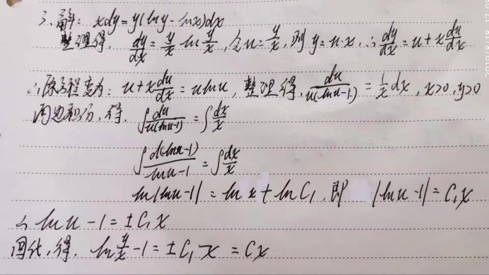 3. 解: xdy=y(lny-lnx)dx
整理得, dy/dx = y/x ln y/x, 令u=y/x, 则 y=u·x, ∴ dy/dx = u+x du/dx
∴原方程变为: u+x du/dx = ulnu, 整理得, du/u(lnu-1) = 1/x dx, x>0, y>0
两边积分, 得, ∫ du/u(lnu-1) = ∫ dx/x
∫ d(lnu-1)/lnu-1 = ∫ dx/x
ln|lnu-1| = lnx + lnC₁, 即 |lnu-1| = C₁x
∴ lnu-1 = ±C₁x
因此, 得, ln y/x -1 = ±C₁x = Cx